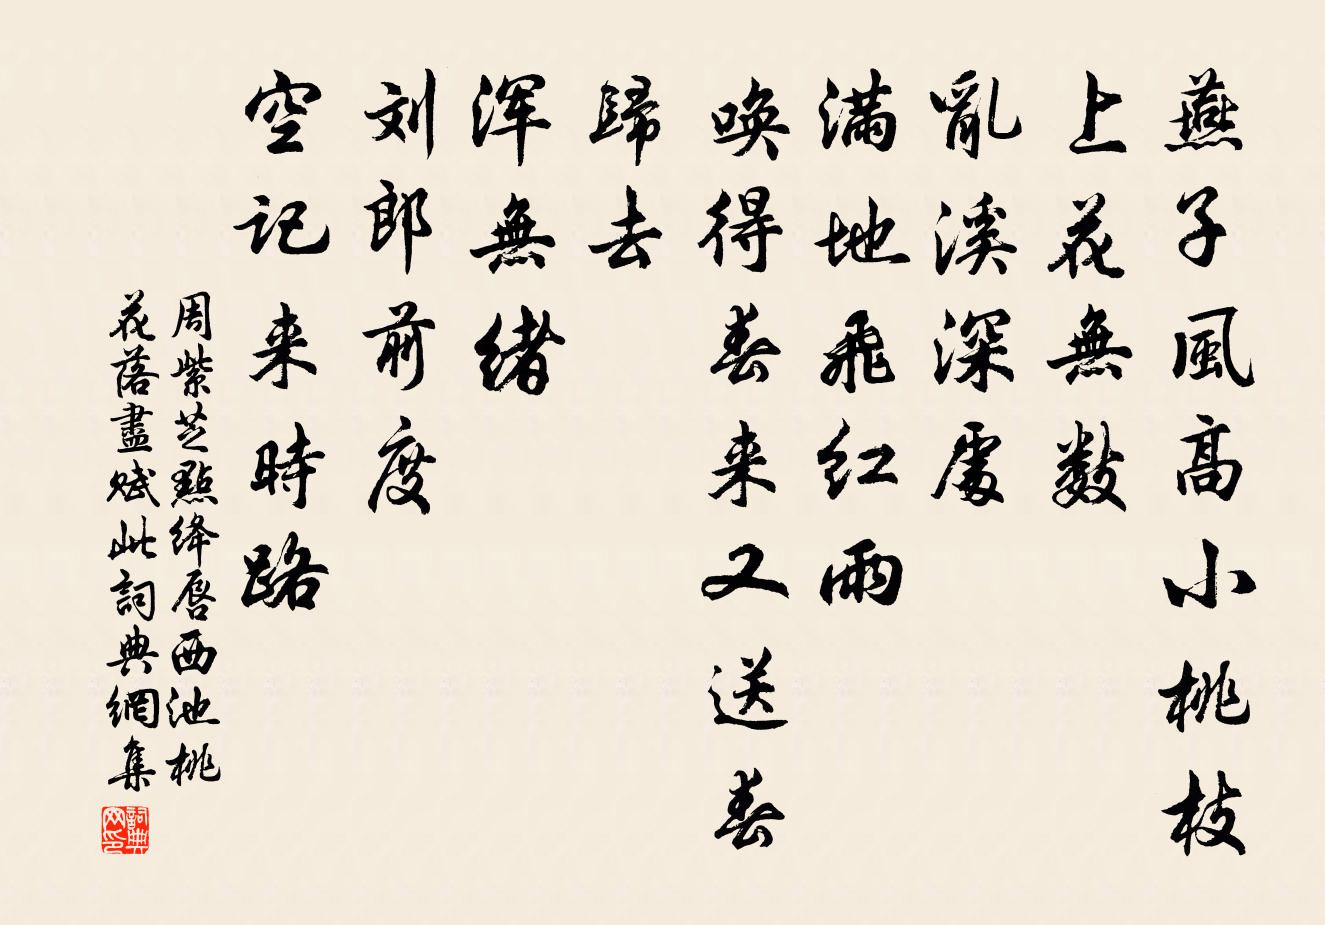 燕子風高小桃枝
上花無数
亂溪深處
满地飛红雨
唤得春来又送春
歸去
浑無緒
刘郎前度
空记来時路
周紫芝點绛唇西池桃
花落盡賦此詞典網集
詞典
网印